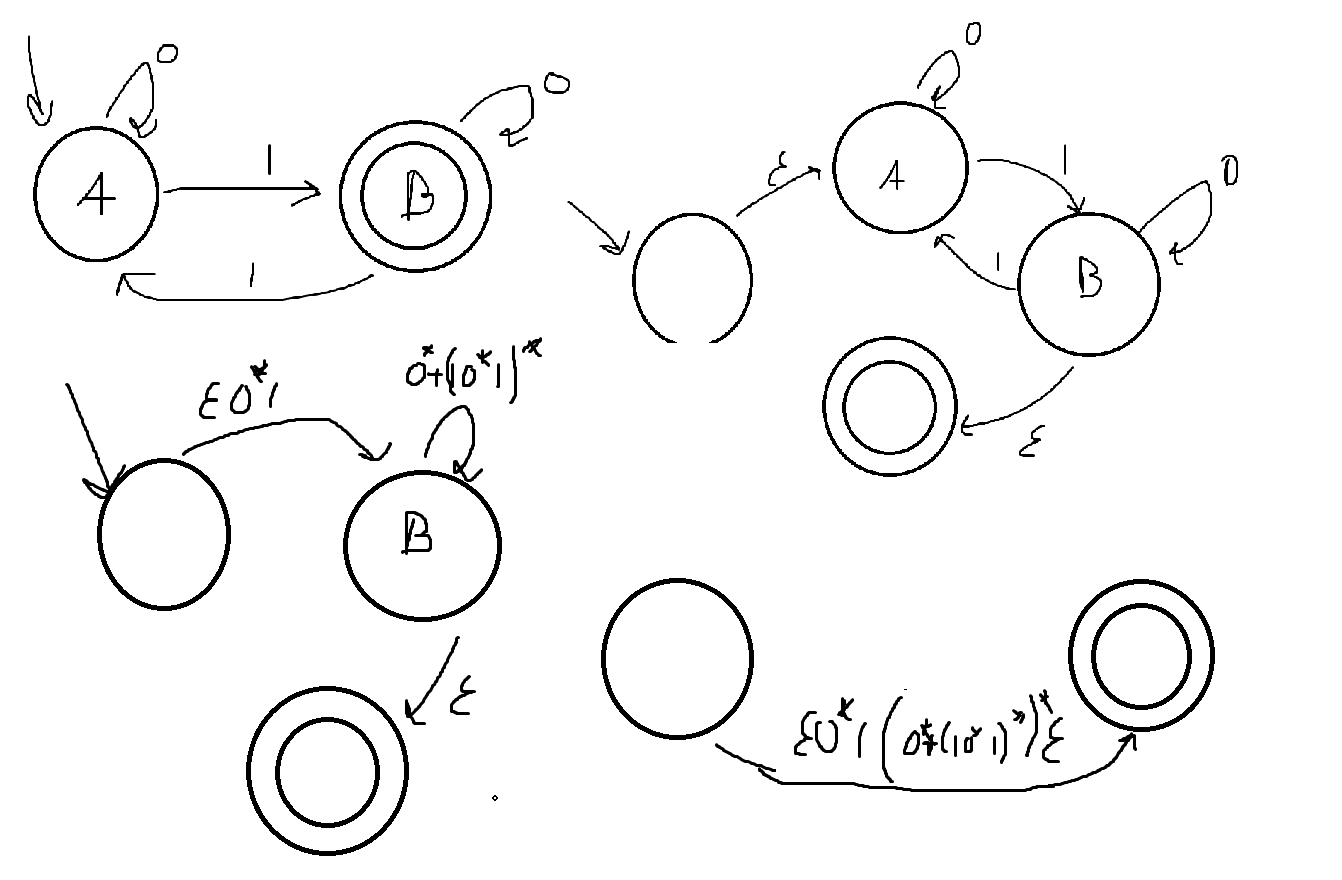 0
A
1
B
0
1
0
ε
A
1
0
1
B
ε
ε0*1
0*+(10*1)*
B
ε
ε0*1(0*+(10*1)*)*ε